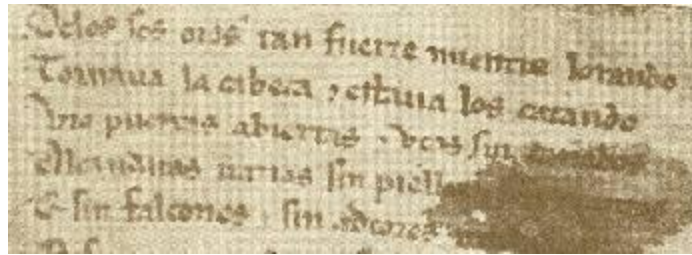 Delos sos oios tan fuerte mientre lorando
Tornaua la cabeça &estaua los catando
Vio puertas abiertas &vços sin cañados
Alcandaras uazias sin pielles
E sin falcones & sin adtores